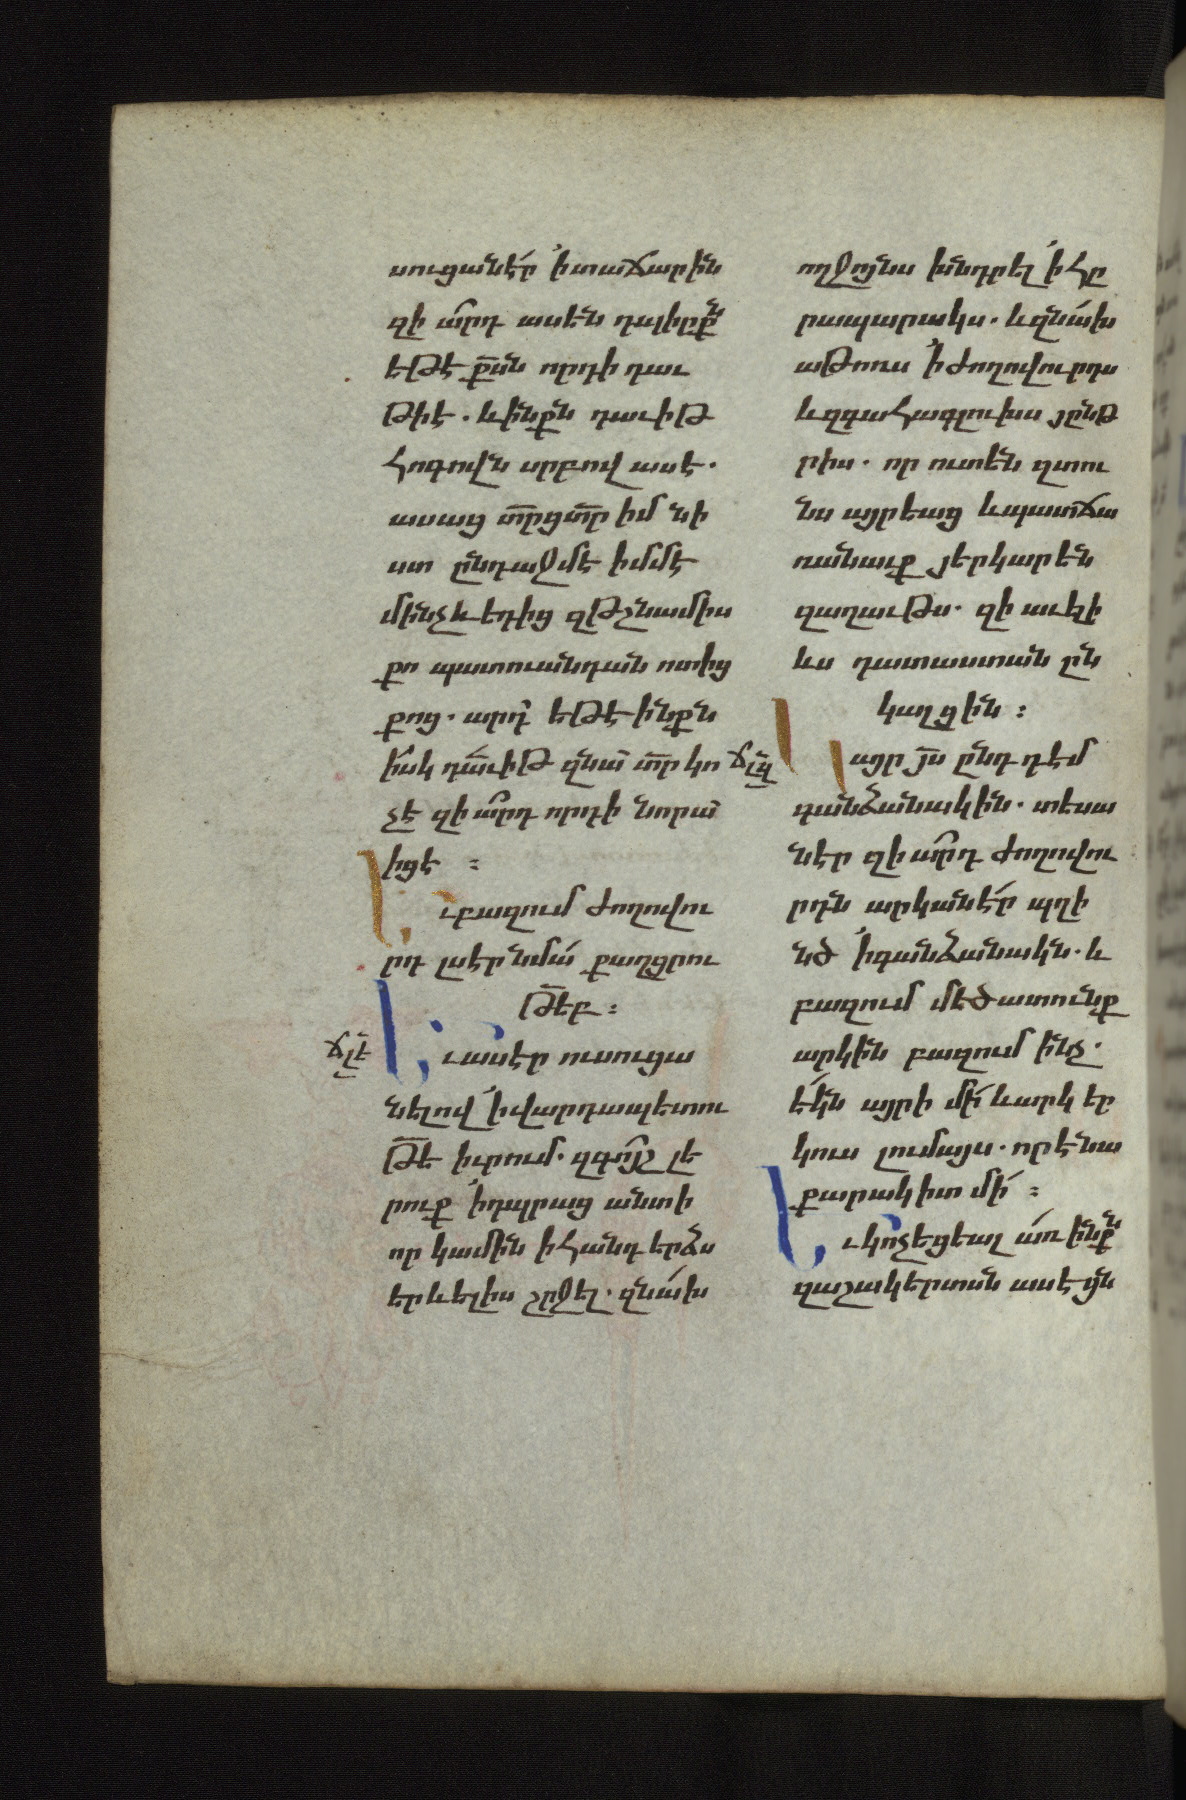 սուցանէր՛ ՚ի տաճարին
զի ա՞րդ ասեն դպիրքն
եթէ ք̅ս̅ն որդի դաւ
թի է. և ինքն դաւիթ
հոգովն սրբով ասէ.
ասաց տ̅ր̅ ց տ̅ր̅ իմ նի
ստ ընդ աջմէ իմմէ
մինչև եդից զթշնամիս
քո պատուանդան ոտից
քոց. արդ՝ եթէ ինքն
իսկ դաւիթ զնա տ̅ր̅ կո
չէ զի ա՞րդ որդի նորա
իցէ ։
Ւ բազում ժողովու
րդ լսէր նմա՛ քաղցրու
թ̅ե̅բ ։
ճլէ
Ւ ասէր ուսուցա
նելով ՚ի վարդապետու
թ̅ե̅ իւրում. զգո՞յշ լե
րուք ՚ի դպրաց անտի
որ կամին ի հանդերձս
երևելիս շրջել. զնա՛խ
ողջոյնս խնդրել ՚ի հր
րապարակս. և զնա՛խ
աթոռս ՚ի ժողովուրդս
և զգահագլուխս յընթ
րիս. որ ուտեն զտու
նս այրեաց և պատճա
ռանաւք յերկարեն
զաղաւթս. զի աւելի
ևս դատաստան ըն
կալցին ։
ճլզ
այր յ̅ս̅ ընդ դէմ
գանձանակին. տեսա
նէր զի ա՞րդ ժողովու
րդն արկանէր՛ պղի
նձ ՚ի գանձանակն. և
բազում մեծատունք
արկին բազում ինչ.
եկն այրի մի՛ և արկ եր
կուս լումայս. որ է նա
քարակիտ մի՛ ։
Ւ կոչեցեալ առ ինքն
զաշակերտսն ասէ ցն